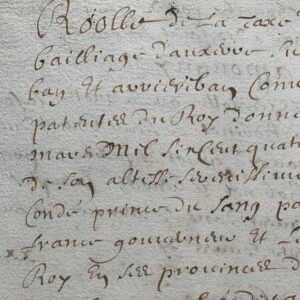 Roolle de La taxe
bailliage dauxerre
ban Et arriereban Com
patentes du Roy donne
mars Mil six Cent quat
de son altesse serenissime
Condé prince du sang p
france gouverneur Et L
Roy En ses provinces d